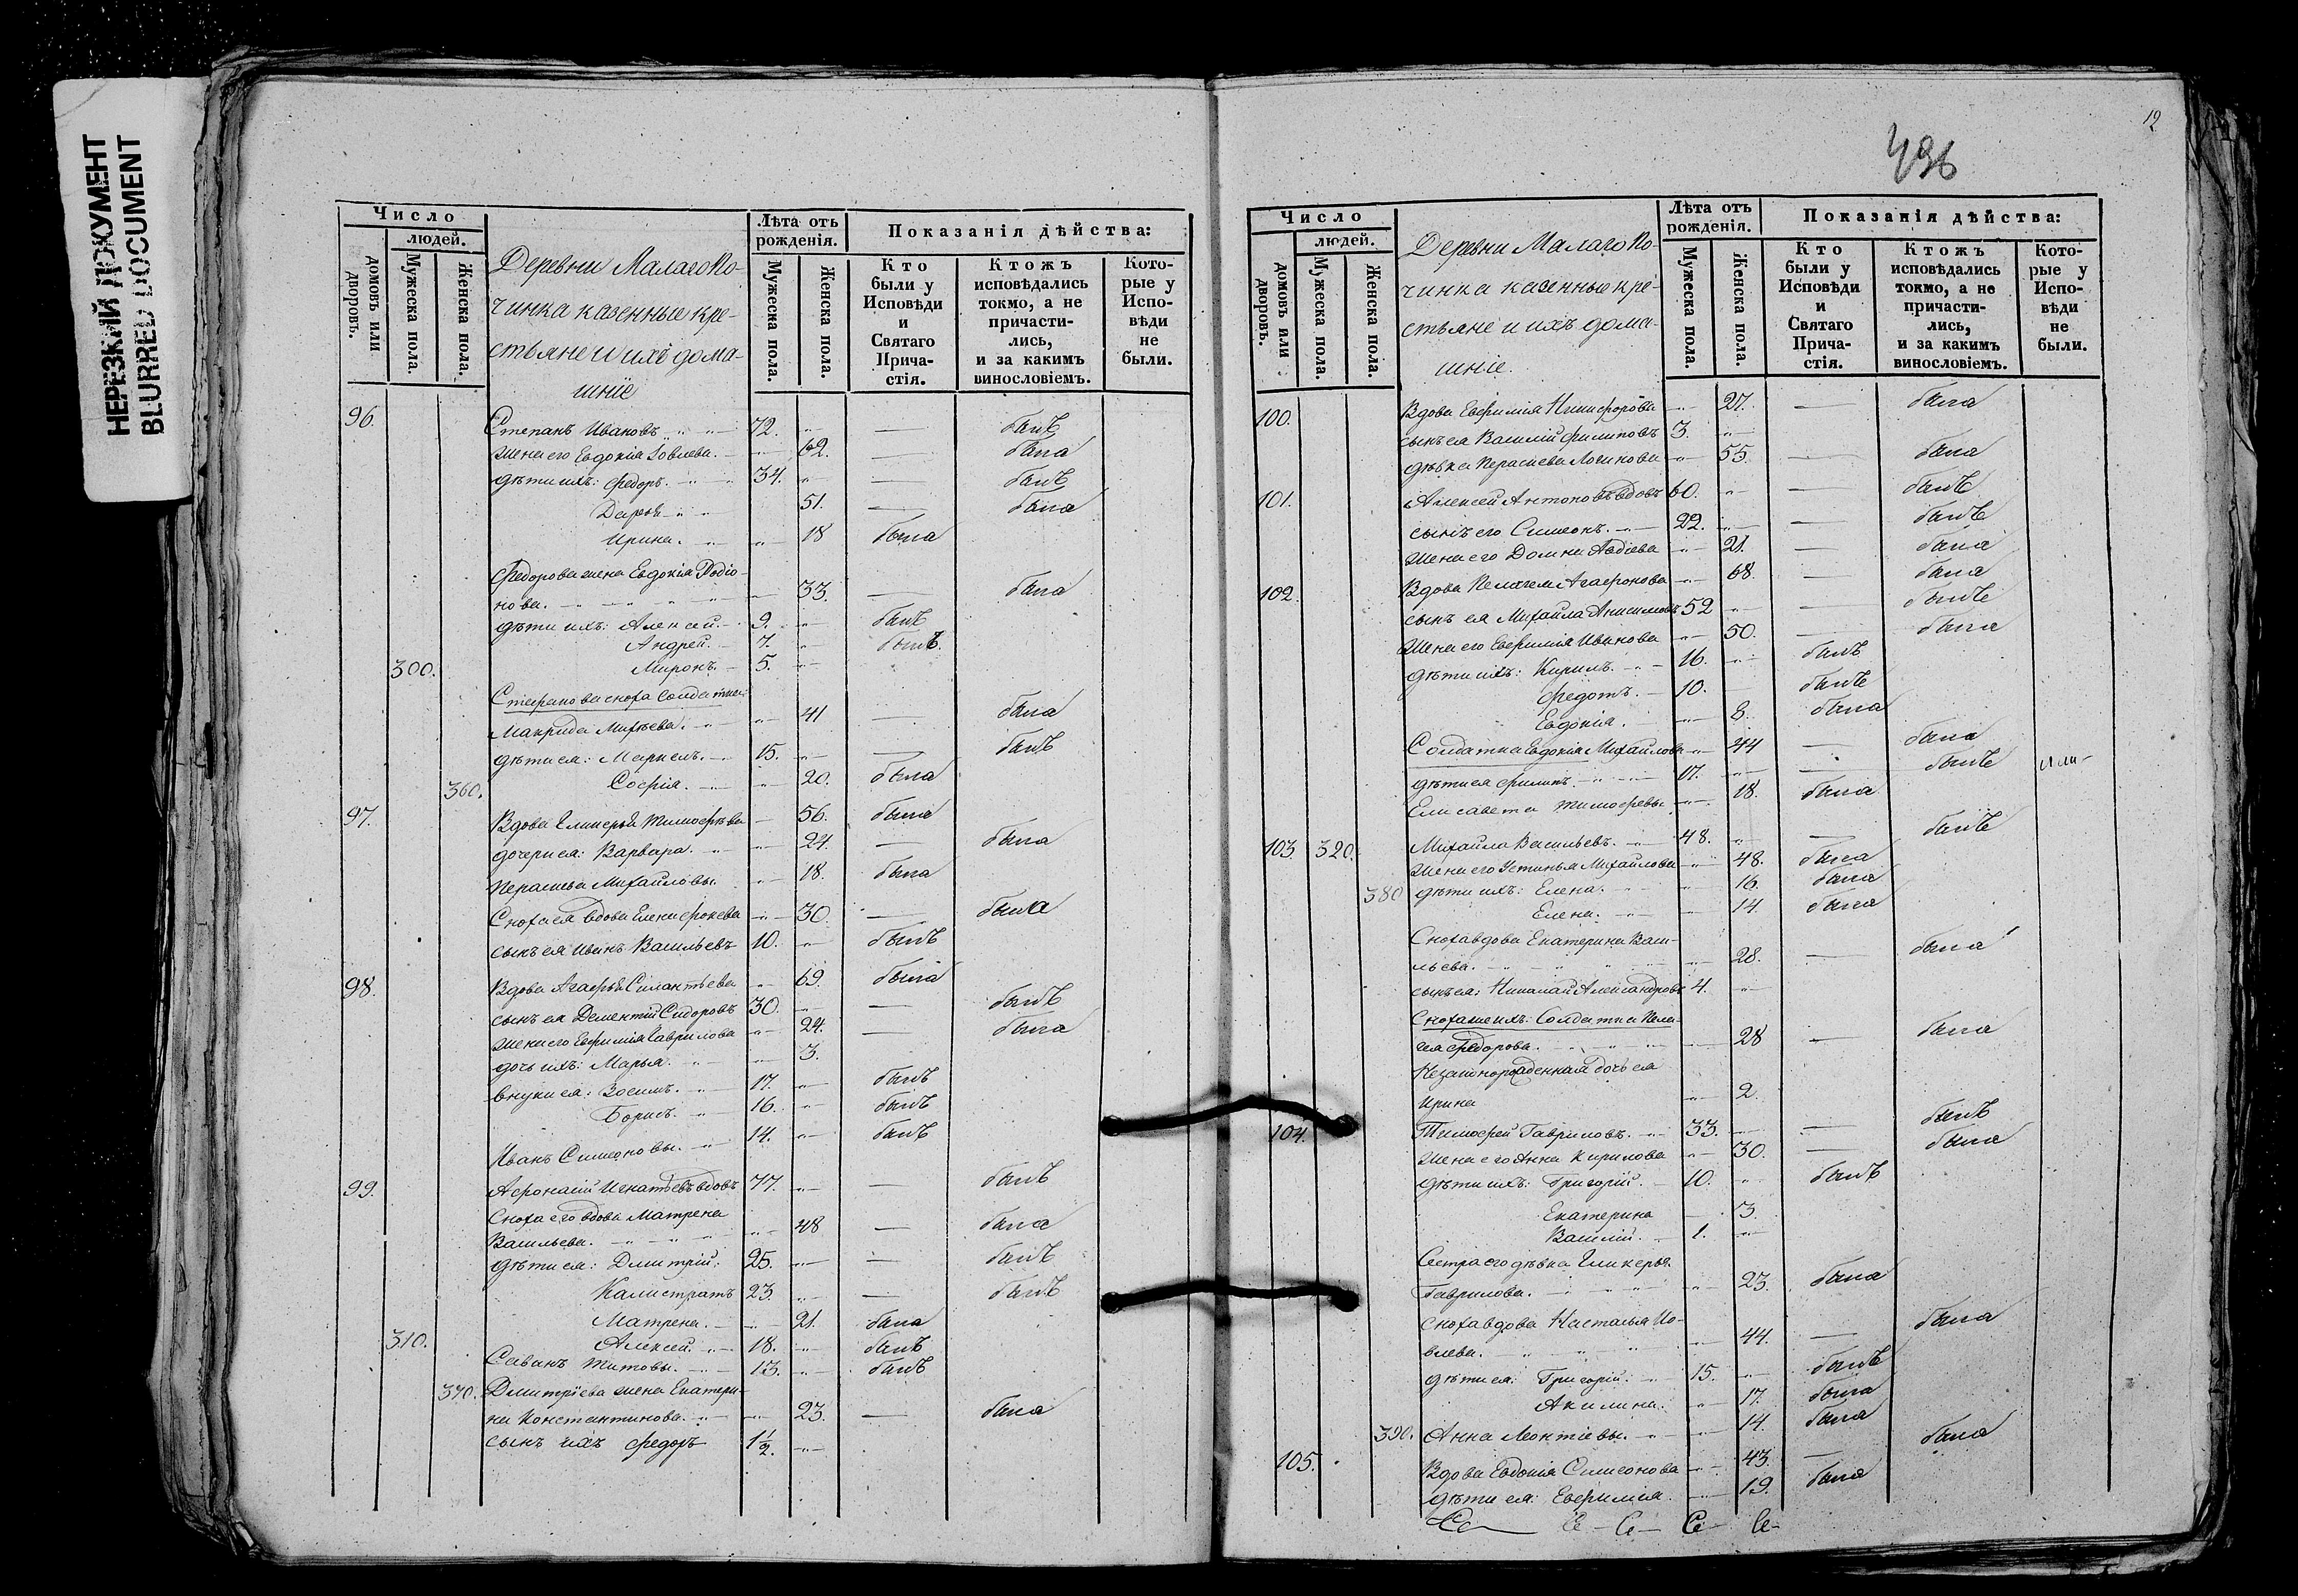 НЕРЕЗКИЙ ДОКУМЕНТ
BLURRED DOCUMENT
Число
людей.
домовъ или дворовъ.
Мужеска пола.
Женска пола.
Деревни Малаго По-
чинка казенные кре-
стьяне и ихъ дома-
шніе
Лѣта отъ рожденія.
Мужеска пола.
Женска пола.
Показанія дѣйства:
Кто были у Исповѣди и Святаго Прича-стія.
Ктожъ исповѣдались токмо, а не причасти-лись, и за какимъ винословіемъ.
Кото-рые у Испо-вѣди не были.
96. Степанъ Ивановъ 72. — былъ
жена его Евдокія Іовлева. 62. — была
дѣти ихъ: Федоръ. 34. — былъ
Дарья 51. — была
Ирина. 18 была
Федорова жена Евдокія Родіо-
нова. 33. — была
дѣти ихъ: Алексей. 9. былъ
Андрей. 7. былъ.
300. Миронъ. 5.
Стефанова сноха солдатка
Макрида Михѣева. 41 — была
дѣти ея: Маркелъ. 15. — былъ
360. Софія. 20. была
97. Вдова Гликерья Тимофѣева 56. была
дочери ея: Варвара. 24. — была
Парасковья Михайловы. 18. была
Сноха ея вдова Елена Фокева 30. — была
сынъ ея Иванъ Васильевъ 10. былъ
98. Вдова Агафья Силантьева 69. была
сынъ ея Дементій Сидоровъ 30. — былъ
жена его Евфимія Гаврилова 24. — была
дочь ихъ: Марья. 3.
внуки ея: Зосимъ. 17. былъ
Борисъ. 16. былъ
Иванъ Симеоновы. 14. былъ
99. Афонасій Игнатьевъ вдовъ 77. — былъ
Сноха его вдова Матрена
Васильева. 48 — была
дѣти ея: Дмитрій. 25. — былъ
Калистратъ 23. — былъ
Матрена. 21. была
310. Алексей. 18. былъ
Савинъ Титовы. 13. былъ
370. Дмитріева жена Екатери-
на Константинова. 23. — была
сынъ ихъ Федоръ 1½.
12
496
Число
людей.
домовъ или дворовъ.
Мужеска пола.
Женска пола.
Деревни Малаго По-
чинка казенные кре-
стьяне и ихъ дома-
шніе.
Лѣта отъ рожденія.
Мужеска пола.
Женска пола.
Показанія дѣйства:
Кто были у Исповѣди и Святаго Прича-стія.
Ктожъ исповѣдались токмо, а не причасти-лись, и за какимъ винословіемъ.
Кото-рые у Испо-вѣди не были.
100. Вдова Евфимія Никифорова 27. — была
сынъ ея Василій Филиповъ 3.
дѣвка Логинова 55. — была
101. Алексей Антоновъ вдовъ 60. — былъ
сынъ его Симеонъ. 22. — былъ
жена его Домна Авдіева 21. — была
102. Вдова Пелагея Агафонова 68. — была
сынъ ея Михайла Анисимовъ 52 — былъ
жена его Евфимія Иванова 50. — была
дѣти ихъ: Кирилъ. 16. былъ
Федотъ. 10. былъ
Евдокія. 8. была
Солдатка Евдокія Михайлова 44 — была
дѣти ея Филипъ. 17. — былъ
Елисавета Тимофеевы 18. была
103. 320. Михайла Васильевъ. 48. — былъ
жена его Устинья Михайлова 48. была
380 дѣти ихъ: Елена. 16. была
Елена. 14. была
Сноха вдова Екатерина Васи-
льева. 28. — была
сынъ ея: Николай Александровъ 4.
Сноха же ихъ: Солдатка Пела-
гея Федорова. 28 — была
Незаконорожденная дочь ея
Ирина 2.
104. Тимофей Гавриловъ. 33. — былъ
жена его Анна Кирилова 30. — была
дѣти ихъ: Григорій. 10. былъ
Екатерина 3.
Василій. 1.
Сестра его дѣвка Гликерья
Гаврилова. 23. была
сноха вдова Наталья Ио-
влева. 44. — была
дѣти ея: Григорій. 15. былъ
Акилина. 17. была
390. Анна Леонтіевы. 14. была
105. Вдова Евдокія Симеонова 43. — была
дѣти ея: Евфимія. 19. была